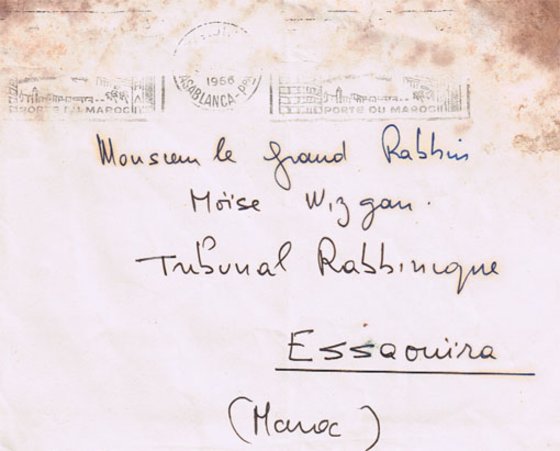 1966
CASABLANCA-PPAL
PORTE DU MAROC PORTE DU MAROC
Monsieur le Grand Rabbin
Moïse Wizgan.
Tribunal Rabbinique
Essaouira
(Maroc)